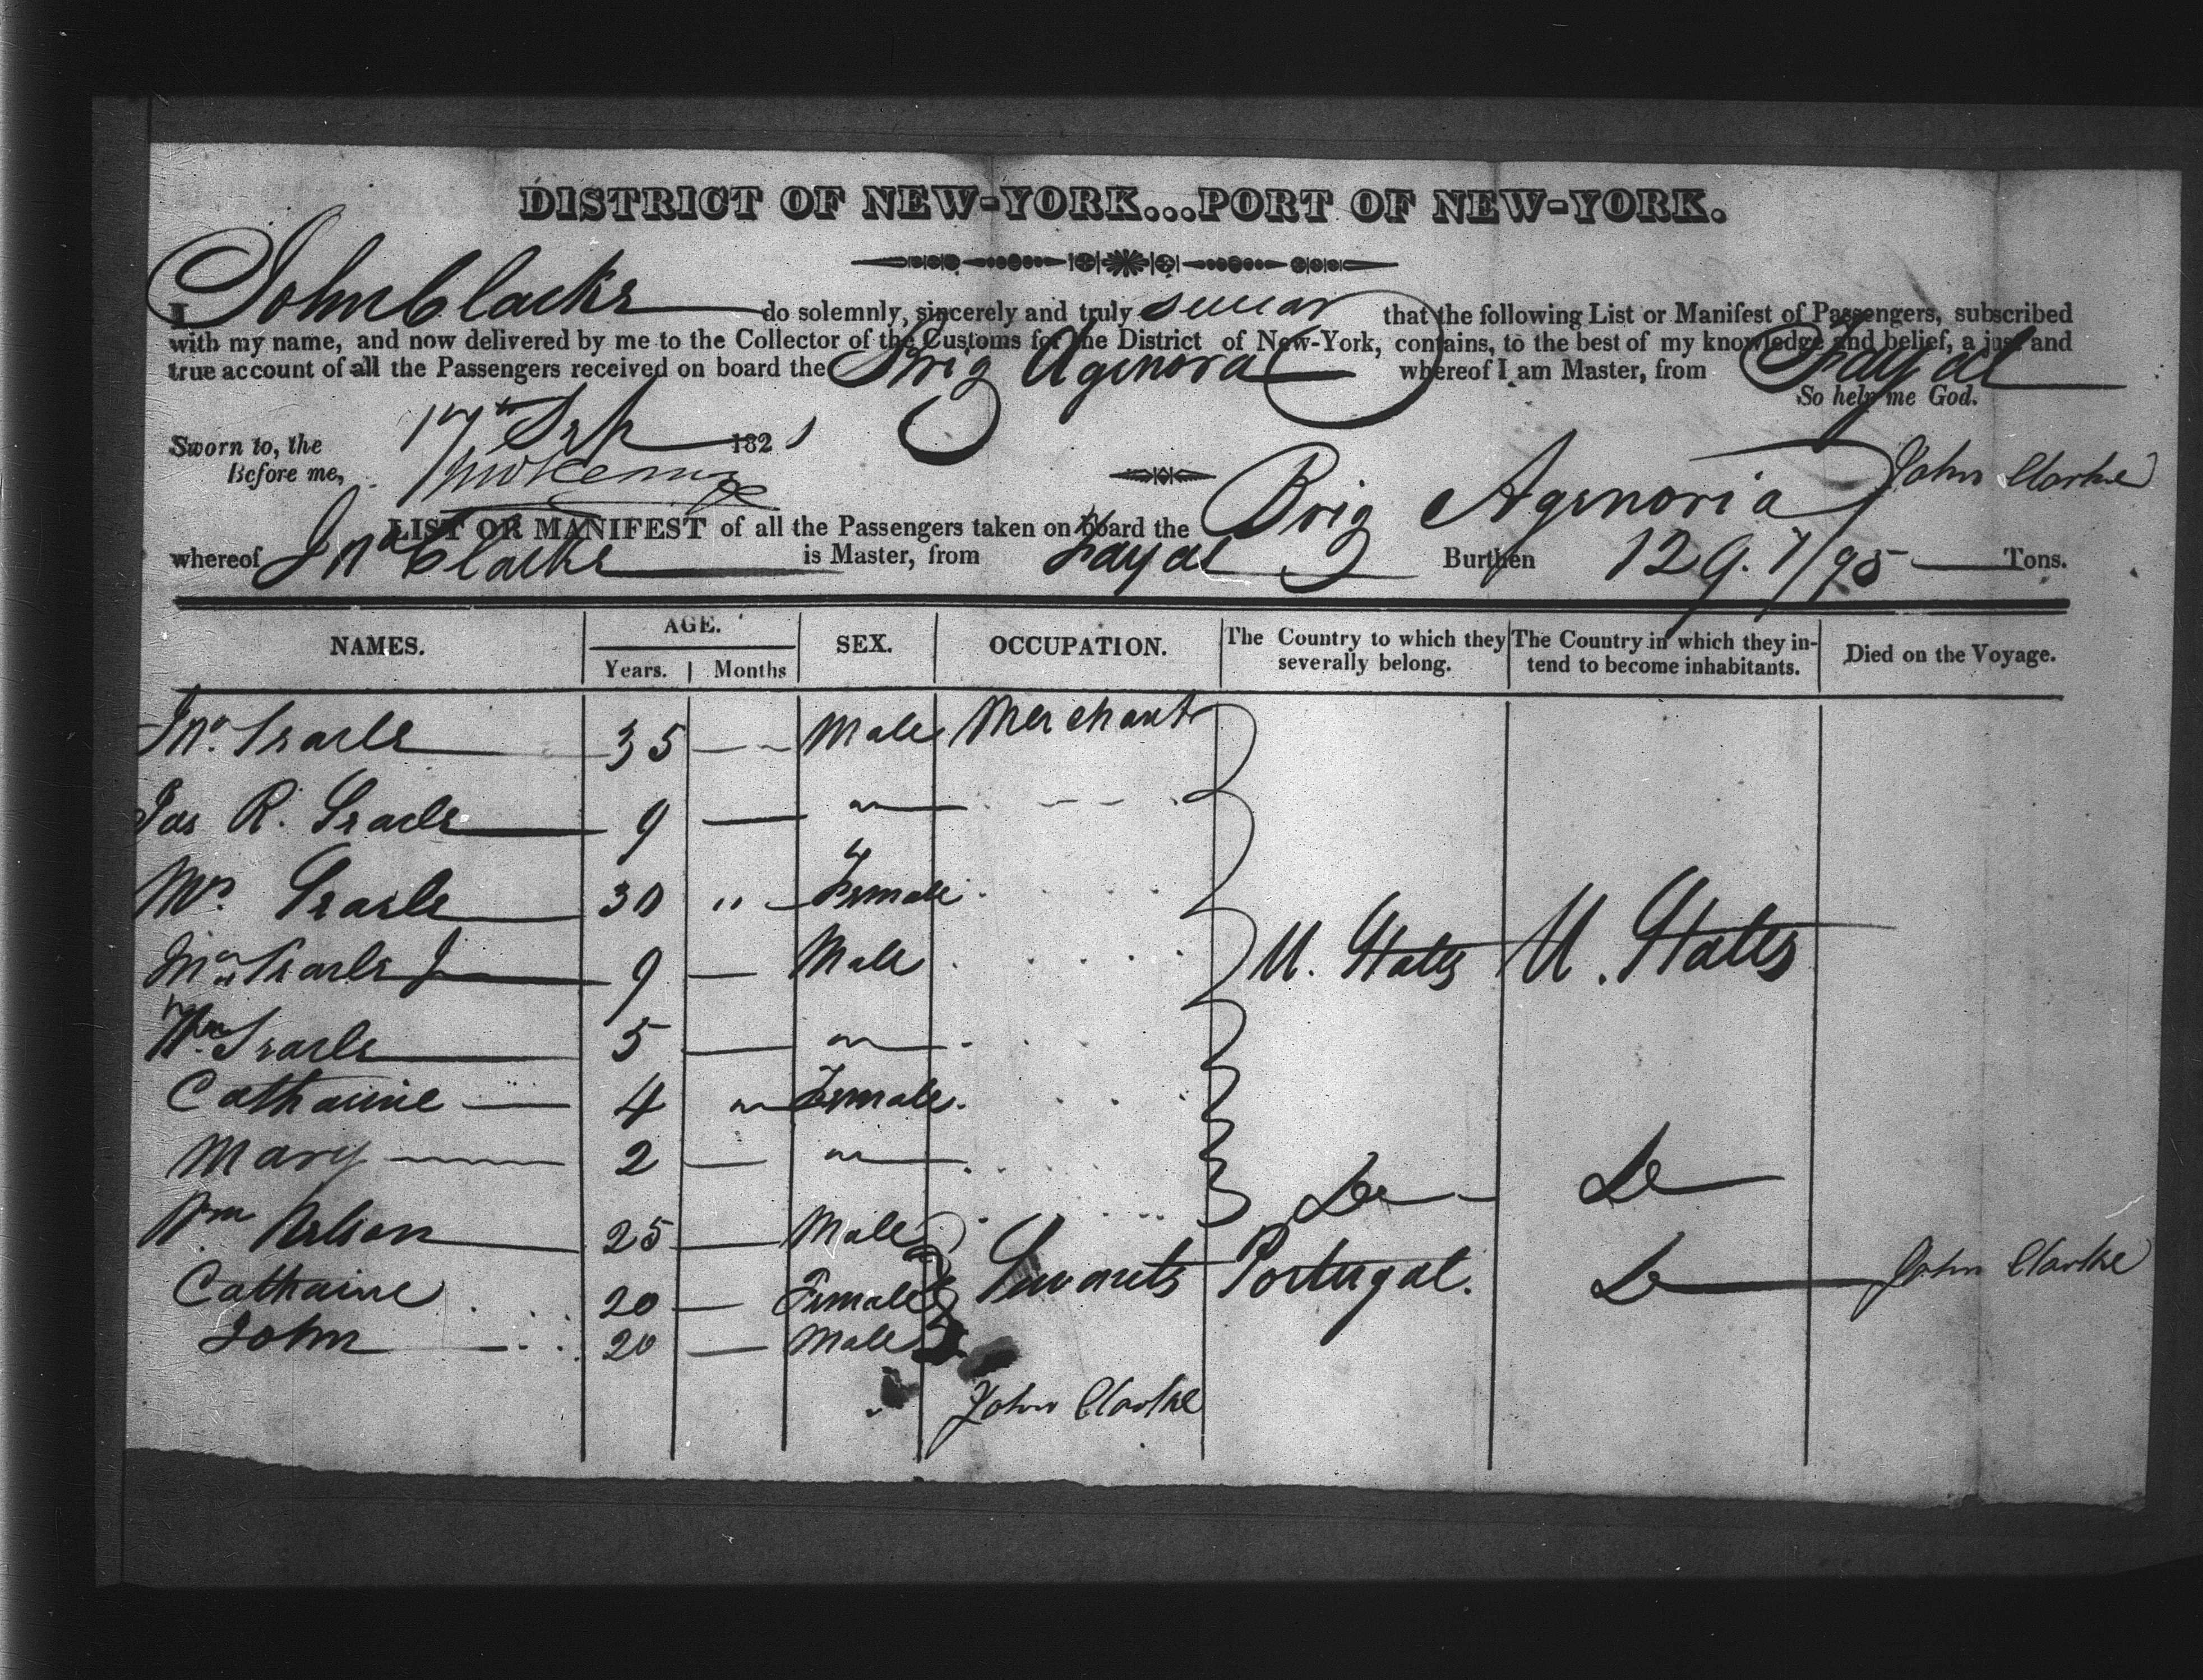 DISTRICT OF NEW-YORK...PORT OF NEW-YORK.
I John Clarke do solemnly, sincerely and truly swear that the following List or Manifest of Passengers, subscribed
with my name, and now delivered by me to the Collector of the Customs for the District of New-York, contains, to the best of my knowledge and belief, a just and
true account of all the Passengers received on board the Brig Agenoria whereof I am Master, from Fayal
So help me God.
Sworn to, the 17th Sep 1821
Before me,
John Clarke
LIST OR MANIFEST of all the Passengers taken on board the Brig Agenoria
whereof Jno Clarke is Master, from Fayal Burthen 129. 7/95 Tons.
NAMES. AGE. Years. Months SEX. OCCUPATION. The Country to which they severally belong. The Country in which they intend to become inhabitants. Died on the Voyage.
Jno. Searle 35 Male Merchant
Jas R. Searle 9 "
Mrs. Searle 30 " Female
Jno. Searle Jr 9 Male U. States U. States
Wm Searle 5 "
Catharine 4 " Female
Mary 2 "
Wm Nelson 25 Male Do Do
Catharine 20 Female Servants Portugal. Do John Clarke
John 20 Male
John Clarke